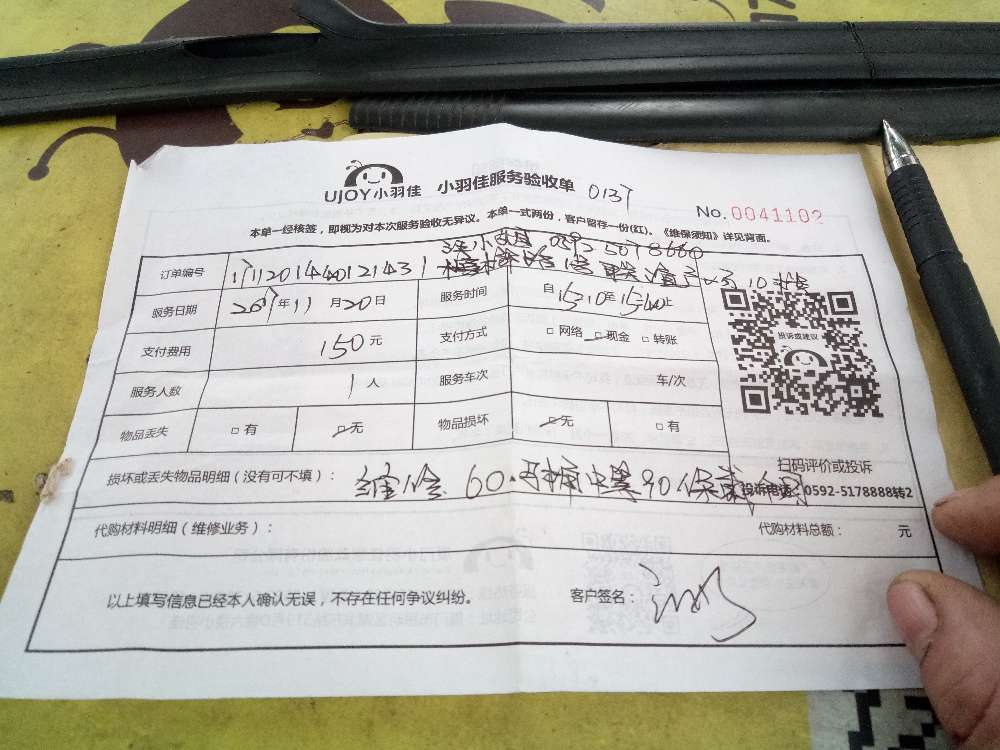 UJOY小羽佳 小羽佳服务验收单 0137
No.0041102
本单一经核签，即视为对本次服务验收无异议。本单一式两份，客户留存一份(红)。《维保须知》详见背面。
小姐 0592 5078660
订单编号 171120144012143
服务日期 2017年11月20日 服务时间 自15:10至15:40止
投诉或建议
支付费用 150元 支付方式 □网络 □现金 □转账
服务人数 1人 服务车次 车/次
物品丢失 □有 □无 物品损坏 □无 □有
扫码评价或投诉
投诉电话：0592-5178888转2
损坏或丢失物品明细（没有可不填）： 60 90
代购材料明细（维修业务）： 代购材料总额： 元
以上填写信息已经本人确认无误，不存在任何争议纠纷。 客户签名：